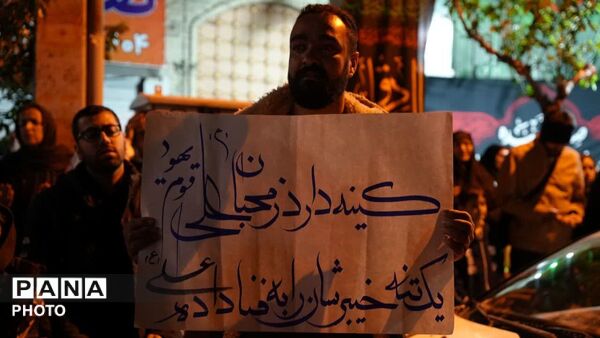 کینه دارد ز محبان علی (ع) قوم یهود
یک تنه خیبرشان را به فنا داده علی (ع)
PANA
PHOTO